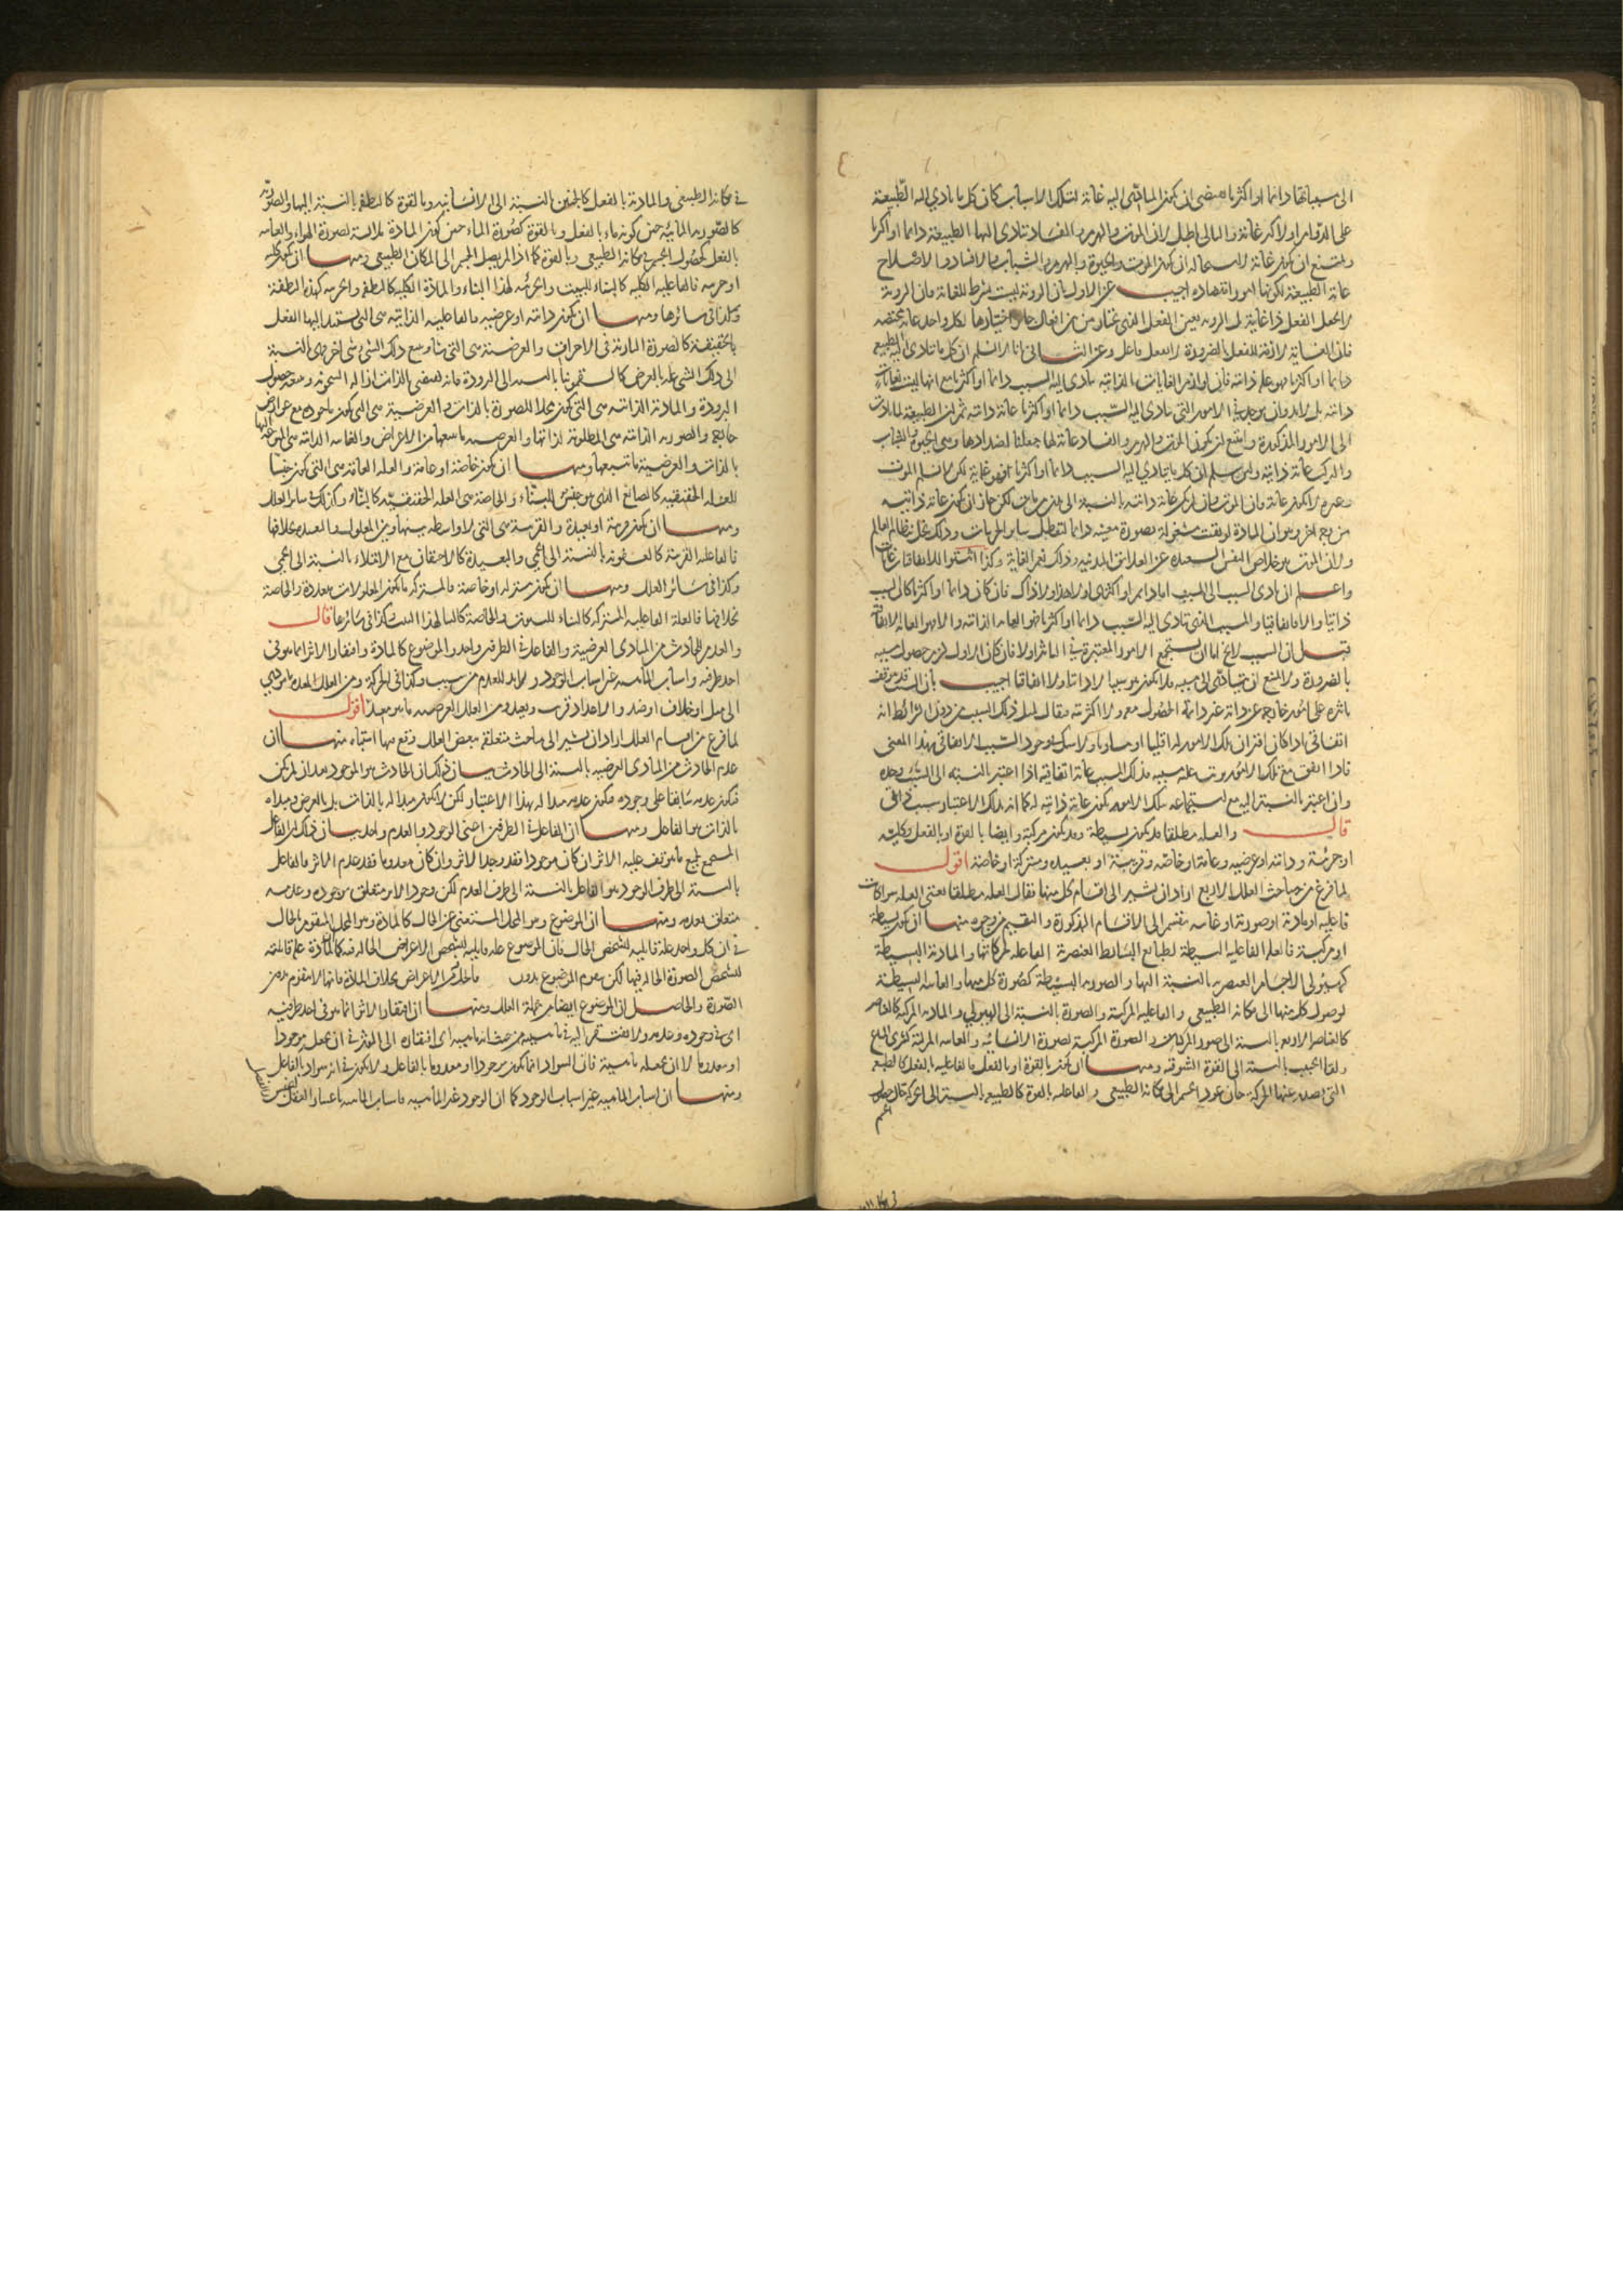 الى مسبباتها دائما او اكثريا يقتضى ان يكون المتأدى اليه غاية لتلك الاسباب كان كل ما يتأدى اليه الطبيعة
على الدوام او الاكثر غاية والتالى باطل لان الموت والهرم والفساد تتأدى اليها الطبيعة دائما او اكثريا
ويمتنع ان يكون غاية لاستحالة ان يكون الموت والحيوة والهرم والشباب والافساد والاصلاح
غاية الطبيعة لكونها امورا متضادة اجيب عن الاول بان الروية ليست بشرط للغاية فان الروية
لا تجعل الفعل ذا غاية بل الروية تعين الفعل الذى يختار من بين افعال جائز اختيارها لكل واحد غاية مختصة
فان الغاية لازمة للفعل بالضرورة لا بفعل فاعل وعن الثانى انا لا نسلم ان كل ما تتأدى اليه الطبيع
دائما او اكثريا فهو غاية ذاتية فان لوازم الغايات الذاتية يتأدى اليه السبب دائما او اكثريا مع انها ليست بغايات
ذاتية بل لا بد وان يوجد فى الامور التى يتأدى اليه السبب دائما او اكثريا غاية ذاتية ثم ان الطبيعة لما تأدت
الى الامور المذكورة وامتنع ان يكون الموت والهرم والفساد غاية لها جعلنا اضدادها وهى الحيوة والشباب
والتركيب غاية ذاتية ولئن سلم ان كل ما يتأدى اليه السبب دائما او اكثريا فهو غاية لكن لا نسلم الموت
وغيره لا يكون غاية فان الموت وان لم يكن غاية ذاتية بالنسبة الى بدن ما جزئى لكن جاز ان يكون غاية ذاتية
من وجه اخر وهو ان المادة لو بقيت مشغولة بصورة معينة دائما لتعطل سائر الجزئيات وذلك مخل بنظام العالم
ولان الموت هو خلاص النفس السعيدة عن العلائق البدنية وذلك نعم الغاية وكذا اثبتوا للاتفاقيات غايات
واعلم ان تأدى السبب الى المسبب اما دائم او اكثرى او لا هذا ولا ذاك فان كان دائما او اكثريا كان السبب
ذاتيا والا فاتفاقيا والمسبب الذى يتأدى اليه السبب دائما او اكثريا فهو الغاية الذاتية والا فهو الغاية الاتفاقية
قيل ان السبب لا يخ اما ان يستجمع الامور المعتبرة فى التأثير او لا فان كان الاول لزم حصول مسببه
بالضرورة والا امتنع ان يتأدى الى مسببه فلا يكون موجبا لا ذاتيا ولا اتفاقيا اجيب بان السبب قد يتوقف
تأثيره على امور خارجة عن ذاته غير دائمة الحصول معه ولا اكثرية فيقال لمثل ذلك السبب من دون الشرائط انه
اتفاقى اذا كان اقتران تلك الامور له اقليا او مساويا ولا شك فى وجود السبب الاتفاقى بهذا المعنى
فاذا اتفق مع تلك الامور ترتب عليه مسببه فذلك المسبب غاية اتفاقية اذا اعتبر بالنسبة الى السبب وحده
وان اعتبر بالنسبة اليه مع استجماعه تلك الامور يكون غاية ذاتية له كما انه بذلك الاعتبار سبب ذاتى
قال والعلة مطلقا قد تكون بسيطة وقد تكون مركبة وايضا بالقوة او بالفعل وكلية
او جزئية وذاتية او عرضية وعامة او خاصة وقريبة او بعيدة ومشتركة او خاصة اقول
لما فرغ من مباحث العلل الاربع اراد ان يشير الى اقسام كل منها فقال العلة مطلقا يعنى العلة سواء كانت
فاعلية او مادية او صورية او غائية تنقسم الى الاقسام المذكورة والتقسيم من وجوه منها ان تكون بسيطة
او مركبة فالعلة الفاعلية البسيطة كطبائع البسائط العنصرية الفاعلة لحركاتها والمادية البسيطة
كهيولى الاجسام العنصرية بالنسبة اليها والصورية البسيطة كصورة كل منها والغائية البسيطة
كوصول كل منها الى مكانه الطبيعى والفاعلية المركبة والصورة بالنسبة الى الهيولى والمادية المركبة كالعناصر
كالعناصر الاربعة بالنسبة الى صور المركبات والصورة المركبة كصورة الانسانية والغائية المركبة كشرى المتاع
ولقاء الحبيب بالنسبة الى القوة الشوقية ومنها ان تكون بالقوة او بالفعل فالفاعلية بالفعل كالطبيعة
التى تصدر عنها الحركة حال عود الجسم الى مكانه الطبيعى والفاعلية بالقوة كالطبيعة بالنسبة الى الحركة حال حصول
الجسم
فى مكانه الطبيعى والمادية بالفعل كالجنين بالنسبة الى الانسانية وبالقوة كالنطفة بالنسبة اليها والصورية
كالصورية المائية حين كونه ماء بالفعل وبالقوة كصورة الماء حين كون المادة ملابسة لصورة الهواء والغائية
بالفعل كحصول الجسم فى مكانه الطبيعى وبالقوة كما اذا لم يصل الجسم الى المكان الطبيعى ومنها ان تكون كلية
او جزئية فالفاعلية الكلية كالبناء للبيت والجزئية لهذا البناء والمادة الكلية كالنطفة والجزئية كهذه النطفة
وكذا فى سائرها ومنها ان تكون ذاتية او عرضية فالفاعلية الذاتية هى التى يستند اليها الفعل
بالحقيقة كالصورة النارية فى الاحراق والعرضية هى التى يتأثر مع ذلك الشئ شئ اخر وهى بالنسبة
الى ذلك الشئ علة بالعرض كالسقمونيا بالنسبة الى البرودة فانه يقتضى بالذات ازالة السخونة ويتبعه حصول
البرودة والمادية الذاتية هى التى تكون محلا للصورة بالذات والعرضية هى التى تكون مأخوذة مع عوارض
خارجية والصورية الذاتية هى المطلوبة لذاتها والعرضية ما يتبعها من الاعراض والغائية الذاتية هى المتوجه اليها
بالذات والعرضية ما تتبعها ومنها ان تكون خاصة او عامة والعلة العامة هى التى تكون جنسا
للعلة الحقيقية كالصانع الذى هو جنس للبناء والخاصة هى العلة الحقيقية كالبناء وكذلك سائر العلل
ومنها ان تكون قريبة او بعيدة والقريبة هى التى لا واسطة بينها وبين المعلول والبعيدة بخلافها
فالفاعلة القريبة كالعفونة بالنسبة الى الحمى والبعيدة كالاحتقان مع الامتلاء بالنسبة الى الحمى
وكذا فى سائر العلل ومنها ان تكون مشتركة او خاصة فالمشتركة ما تكون لمعلولات متعددة والخاصة
بخلافها فالعلة الفاعلية المشتركة كالبناء للبيوت والخاصة كالبناء لهذا البيت وكذا فى سائرها قال
والعدم للحادث من المبادى العرضية والفاعل فى الطرفين واحد والموضوع كالمادة وافتقار الاثر انما هو فى
احد طرفيه واسباب الماهية غير اسباب الوجود ولا بد للعدم من سبب وكذا فى الحركة ومن العلل المعدة ما يؤدى
الى مثل او خلاف او ضد والاعداد قريب وبعيد ومن العلل العرضية ما هو معد اقول
لما فرغ من اقسام العلل اراد ان يشير الى مباحث متعلقة ببعض العلل وقع فيها اشتباه منها ان
عدم الحادث من المبادى العرضية بالنسبة الى الحادث بيان ذلك ان الحادث هو الموجود بعد ان لم يكن
فيكون عدمه سابقا على وجوده فيكون عدمه مبدا له بهذا الاعتبار لكن لا يكون مبدا له بالذات بل بالعرض ومبداه
بالذات هو الفاعل ومنها ان الفاعل فى الطرفين اعنى الوجود والعدم واحد بيان ذلك ان الفاعل
المستجمع لجميع ما يتوقف عليه الاثر ان كان موجودا فقد وجد الاثر وان كان معدوما فقد عدم الاثر فالفاعل
بالنسبة الى طرف الوجود هو الفاعل بالنسبة الى طرف العدم لكن وجود الاثر متعلق بوجوده وعدمه
متعلق بعدمه ومنها ان الموضوع وهو المحل المستغنى عن الحال كالمادة وهو المحل المتقوم بالحال
فى ان كل واحد علة قابلية لتشخص الحال فان الموضوع علة قابلية لتشخص الاعراض الحالة فيه كما ان المادة علة قابلة
لتشخص الصورة الحالة فيها لكن يقوم الموضوع بدون ما يحله من الاعراض بخلاف المادة فانها لا تتقوم بدون
الصورة والحاصل ان الموضوع ايضا من جملة العلل ومنها ان افتقار الاثر انما هو فى احد طرفيه
اى فى وجوده وعدمه ولا يفتقر اليه فى ماهيته من حيث انه ماهية اى افتقاره الى المؤثر فى ان يجعله موجودا
او معدوما لا ان يجعله ماهية فان السواد انما يكون موجودا او معدوما بالفاعل ولا يكون فى انه سواد بالفاعل
ومنها ان اسباب الماهية غير اسباب الوجود كما ان الوجود غير الماهية فاسباب الماهية باعتبار العقل الجنس والفصل